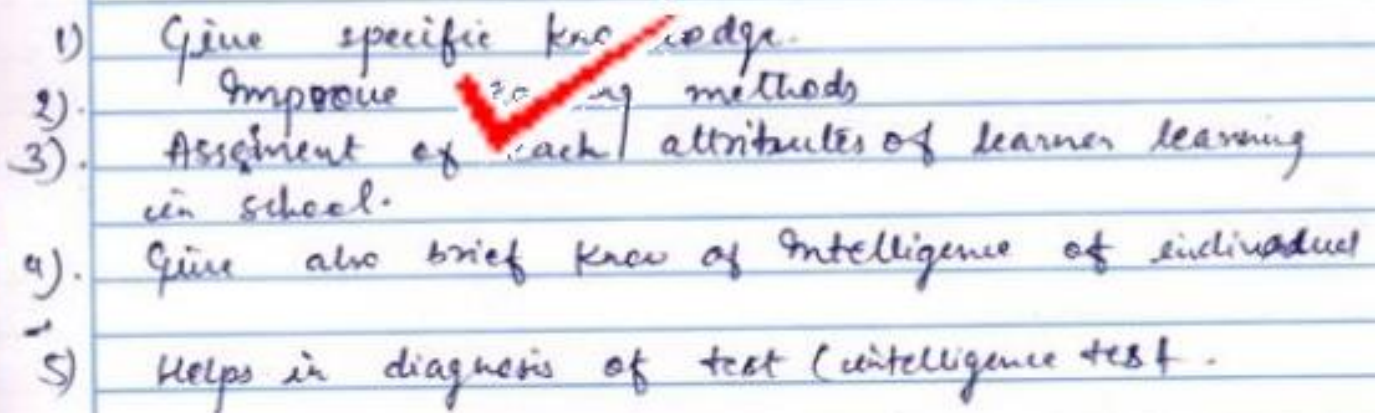 1) Give specific knowledge.
2). Improve methods
3). Assment of each attributes of learner learning
in school.
4). Give also brief know of Intelligence of individual
5) Helps in diagnosis of test (intelligence test.